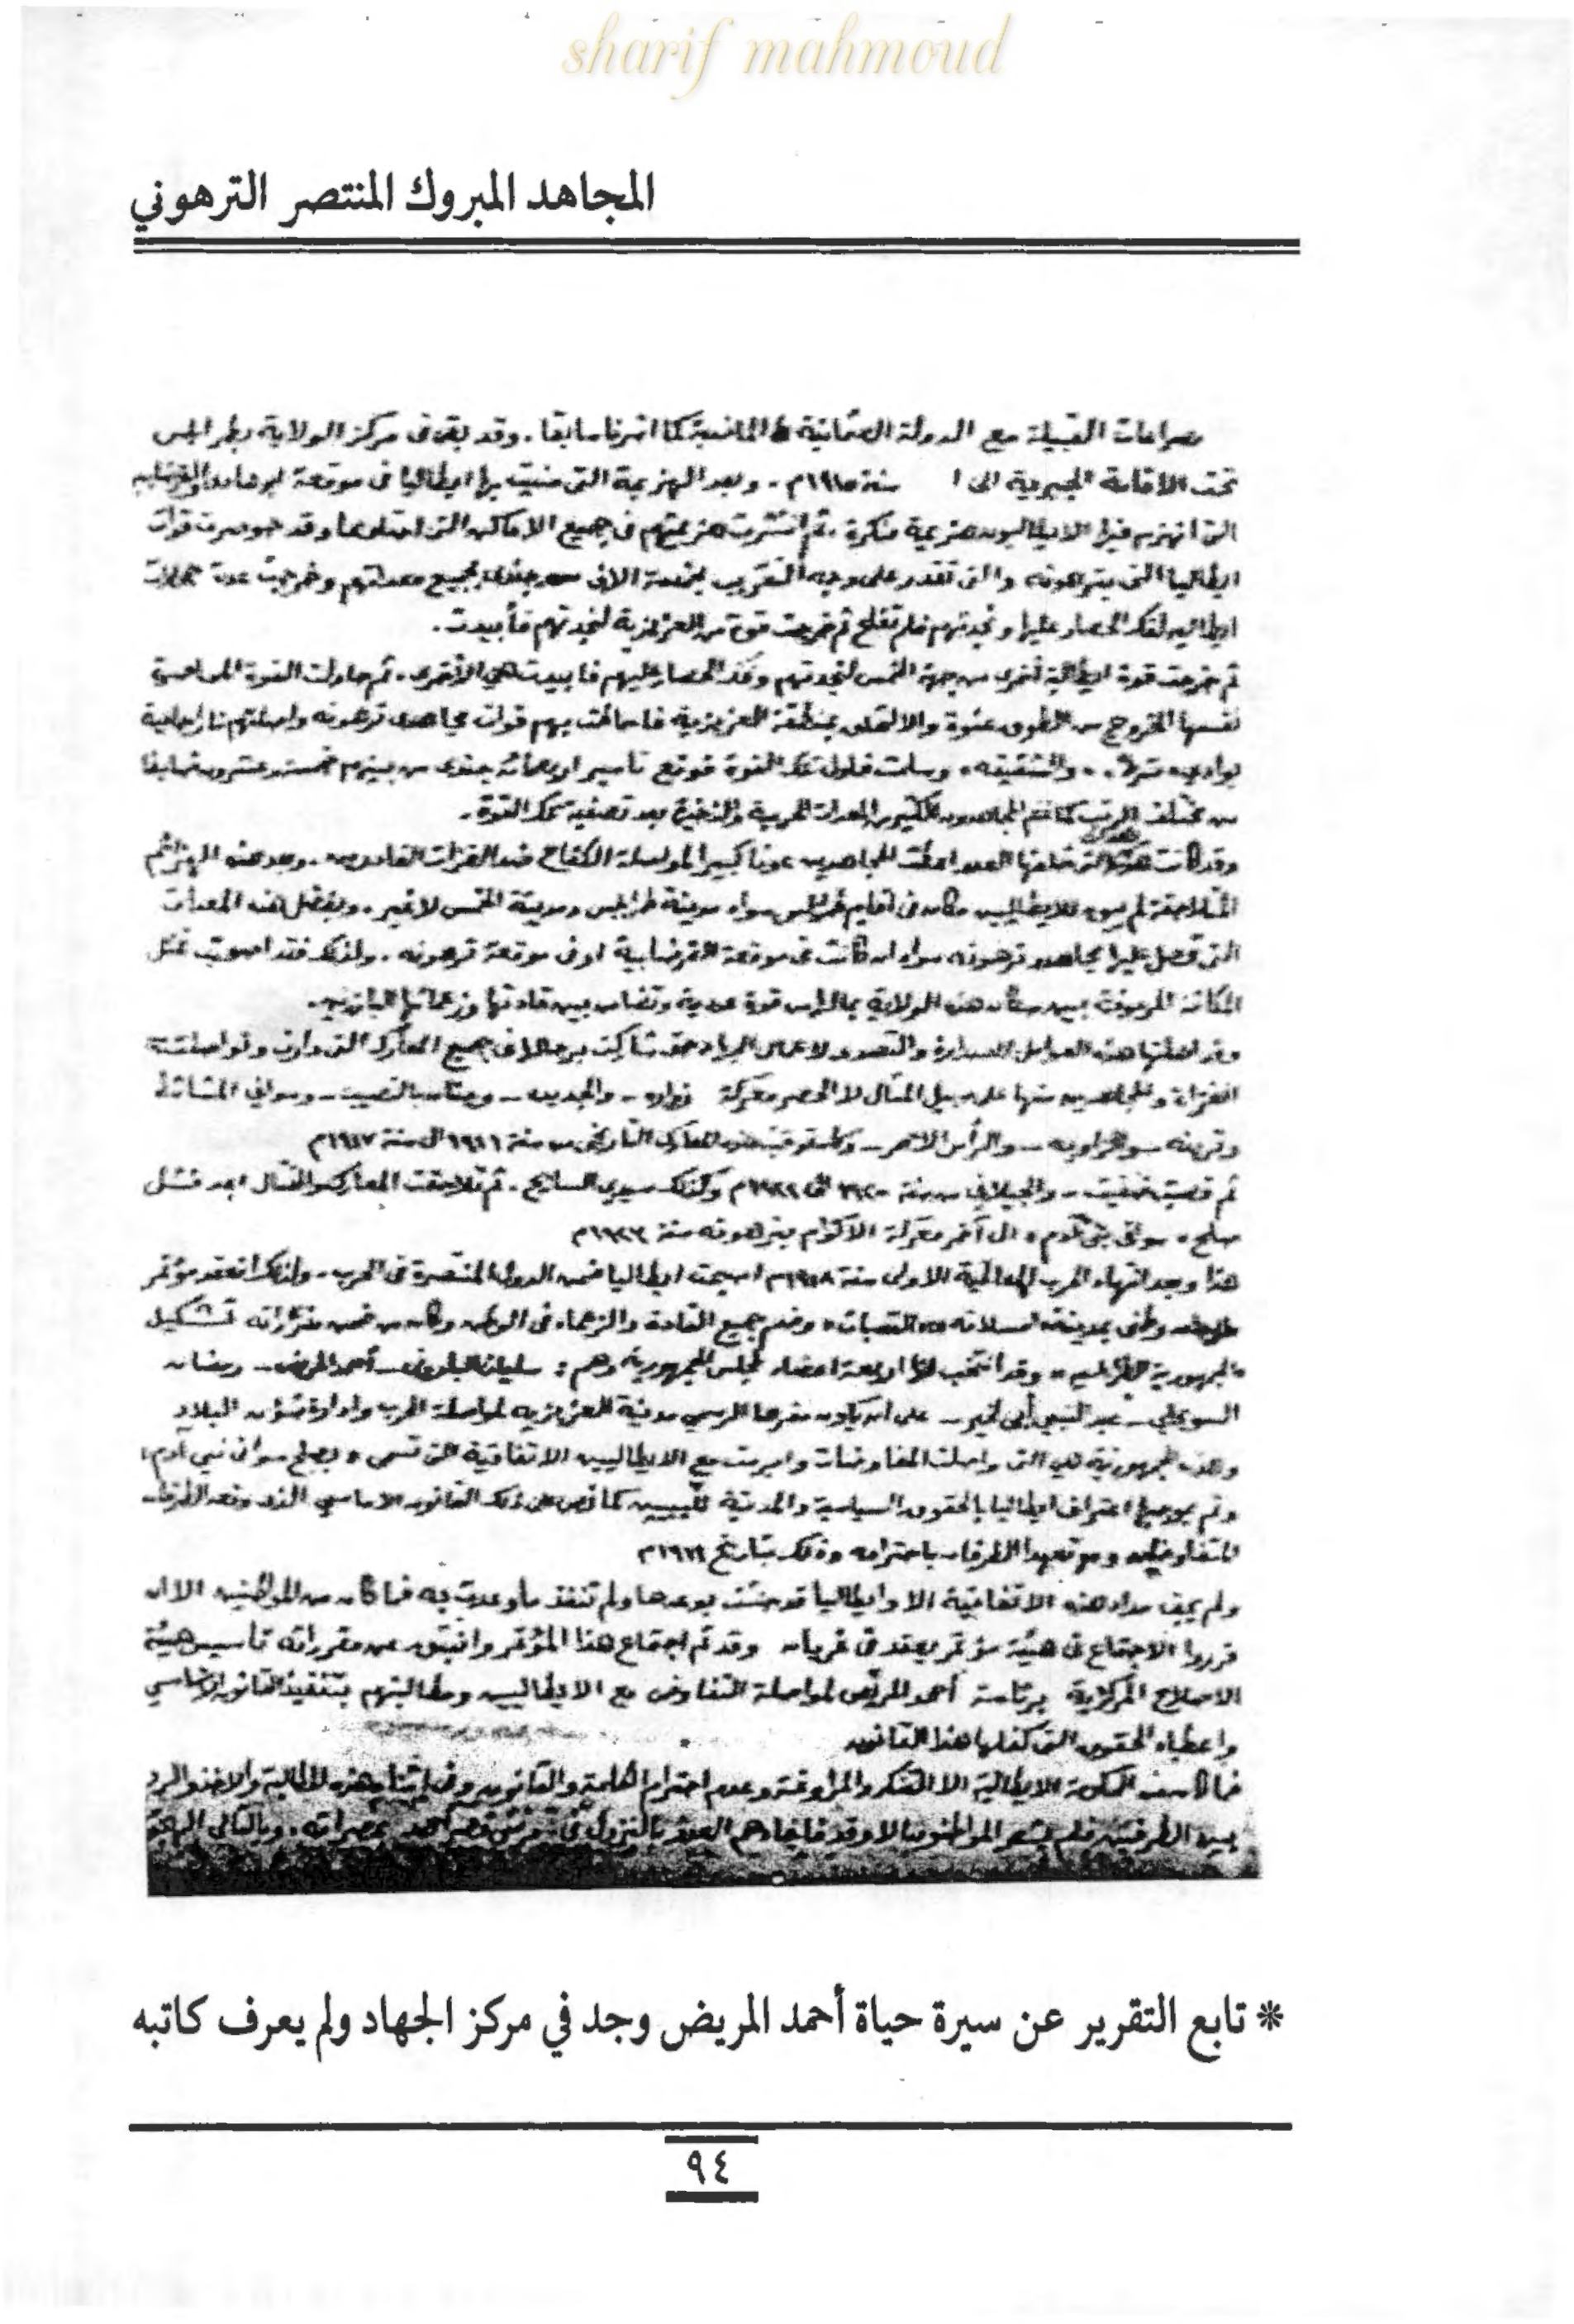 sharif mahmoud
المجاهد المبروك المنتصر الترهوني
صراعات القبيلة مع الدولة العثمانية كما اشرنا سابقا . وقد بقى فى مركز الولاية بطرابلس
تحت الاقامة الجبرية الى سنة ١٩١٥م . وبعد الهزيمة التى منيت بها ايطاليا فى موقعة
التى انهزم فيها الايطاليون هزيمة منكرة . ثم انتشرت هزيمتهم فى جميع الاماكن التى احتلوها وقد حوصرت قوات
ايطاليا التى بترهونه والتى تقدر على وجه التقريب بخمسة الاف جندى بجميع معداتهم وخرجت عدت حملات
ايطاليه لفك الحصار عليها ونجدتهم فلم تفلح ثم خرجت قوة من العزيزية لنجدتهم فأبيدت .
ثم خرجت قوة ايطالية أخرى من جهة الخمس لنجدتهم وفك الحصار عليهم فابيدت هي الأخرى . ثم حاولت القوة
نفسها الخروج من الطوق عنوة والالتحاق بمنطقة العزيزية فاحاطت بهم قوات مجاهدى ترهونه واصلتهم نارا حامية
بوادي والشقيقه وسلمت فلول تلك القوة فوقع تأسير اربعمائة جندى من بينهم خمسة وعشرون ضابطا
من مختلف الرتب كما غنم المجاهدون الكثير من المعدات الحربية والذخيرة بعد تصفية تلك القوة .
وقد كانت التى خلفها العدو اعطت المجاهدين عونا كبيرا لمواصلة الكفاح ضد الغزات الغادرين . وبعد هذه الهزائم
المتلاحقة لم يبق للايطاليين مكان فى اقليم طرابلس سواء مدينة طرابلس ومدينة الخمس لاغير . وبفضل هذه المعدات
التى تحصل عليها مجاهدو ترهونه سواء ان كانت فى موقعة القرضابية او فى موقعة ترهونه . ولذلك فقد اصبحت تمثل
المكانة المرموقة بين سكان هذه الولاية بمالها من قوة عددية وتضامن بين قادتها وزعمائها البارزين .
وقد اهلتها هذه العوامل للصدارة والتصدر لاعمال الجهاد حتى شاركت برجالها فى جميع المعارك التى دارت وتواصلت بين
الغزاة والمجاهدين منها على سبيل المثال لا الحصر معركة زواره - والجديده - وسواني المشاشطه
والرأس الاحمر - سنة ١٩١٦ الى سنة ١٩١٧م
ثم قصبت تغنيت - والجيلاني من سنة وكذلك سيدي السائح . ثم تلاحقت المعارك والقتال بعد فشل
صلح سوانى بنى آدم الى آخر معركة بترهونه سنة
هذا وبعد انتهاء الحرب العالمية الاولى سنة ١٩١٨م اصبحت ايطاليا ضمن الدول المنتصرة فى الحرب . ولذلك انعقد مؤتمر
وطنى بمدينة امسلاته القصبات وضم جميع القادة والزعماء فى الوطن وكان من ضمن مقرراته تشكيل
الجمهورية الطرابلسيه وقد انتخب لها اربعة اعضاء لمجلس الجمهورية وهم : سليمان البارونى - أحمد المريض - رمضان
السويحلي - عبد النبي أبى الخير - على ان يكون مقرها الرسمي مدينة العزيزيه لمواصلة الحرب وادارة شؤون البلاد
وهذه الجمهورية هي التى واصلت المفاوضات وابرمت مع الايطاليين الاتفاقية التى تسمى بصلح سوانى بني آدم
وتم بموجبها اعتراف ايطاليا بالحقوق السياسية والمدنية لليبيين كما نص على ذلك القانون الاساسي الذى وقعه الطرفان
المتفاوضان وهو تعهد الطرفان باحترامه وذلك بتاريخ ١٩١٩م
ولم يجف مداد هذه الاتفاقية الا وايطاليا قد حنثت بوعدها ولم تنفذ ما وعدت به فما كان من المواطنين الا ان
قرروا الاجتماع فى هيئة مؤتمر يعقد فى غريان وقد تم اجتماع هذا المؤتمر وانبثق عن مقرراته تأسيس هيئة
الاصلاح المركزية برئاسة أحمد المريض لمواصلة التفاوض مع الايطاليين ومطالبتهم بتنفيذ القانون الاساسي
واعطاء الحقوق التى كفلها هذا القانون
فما كان من الحكومة الايطالية الا التنكر والمراوغة وعدم احترام الكلمة والقانون وفى اثناء هذه المطالبة والاخذ والرد
بين الطرفين فلم يشعر المواطنون الا وقد فاجأهم العدو بالنزول فى قصر احمد بمصراته . وبالتالى
* تابع التقرير عن سيرة حياة أحمد المريض وجد في مركز الجهاد ولم يعرف كاتبه
٩٤